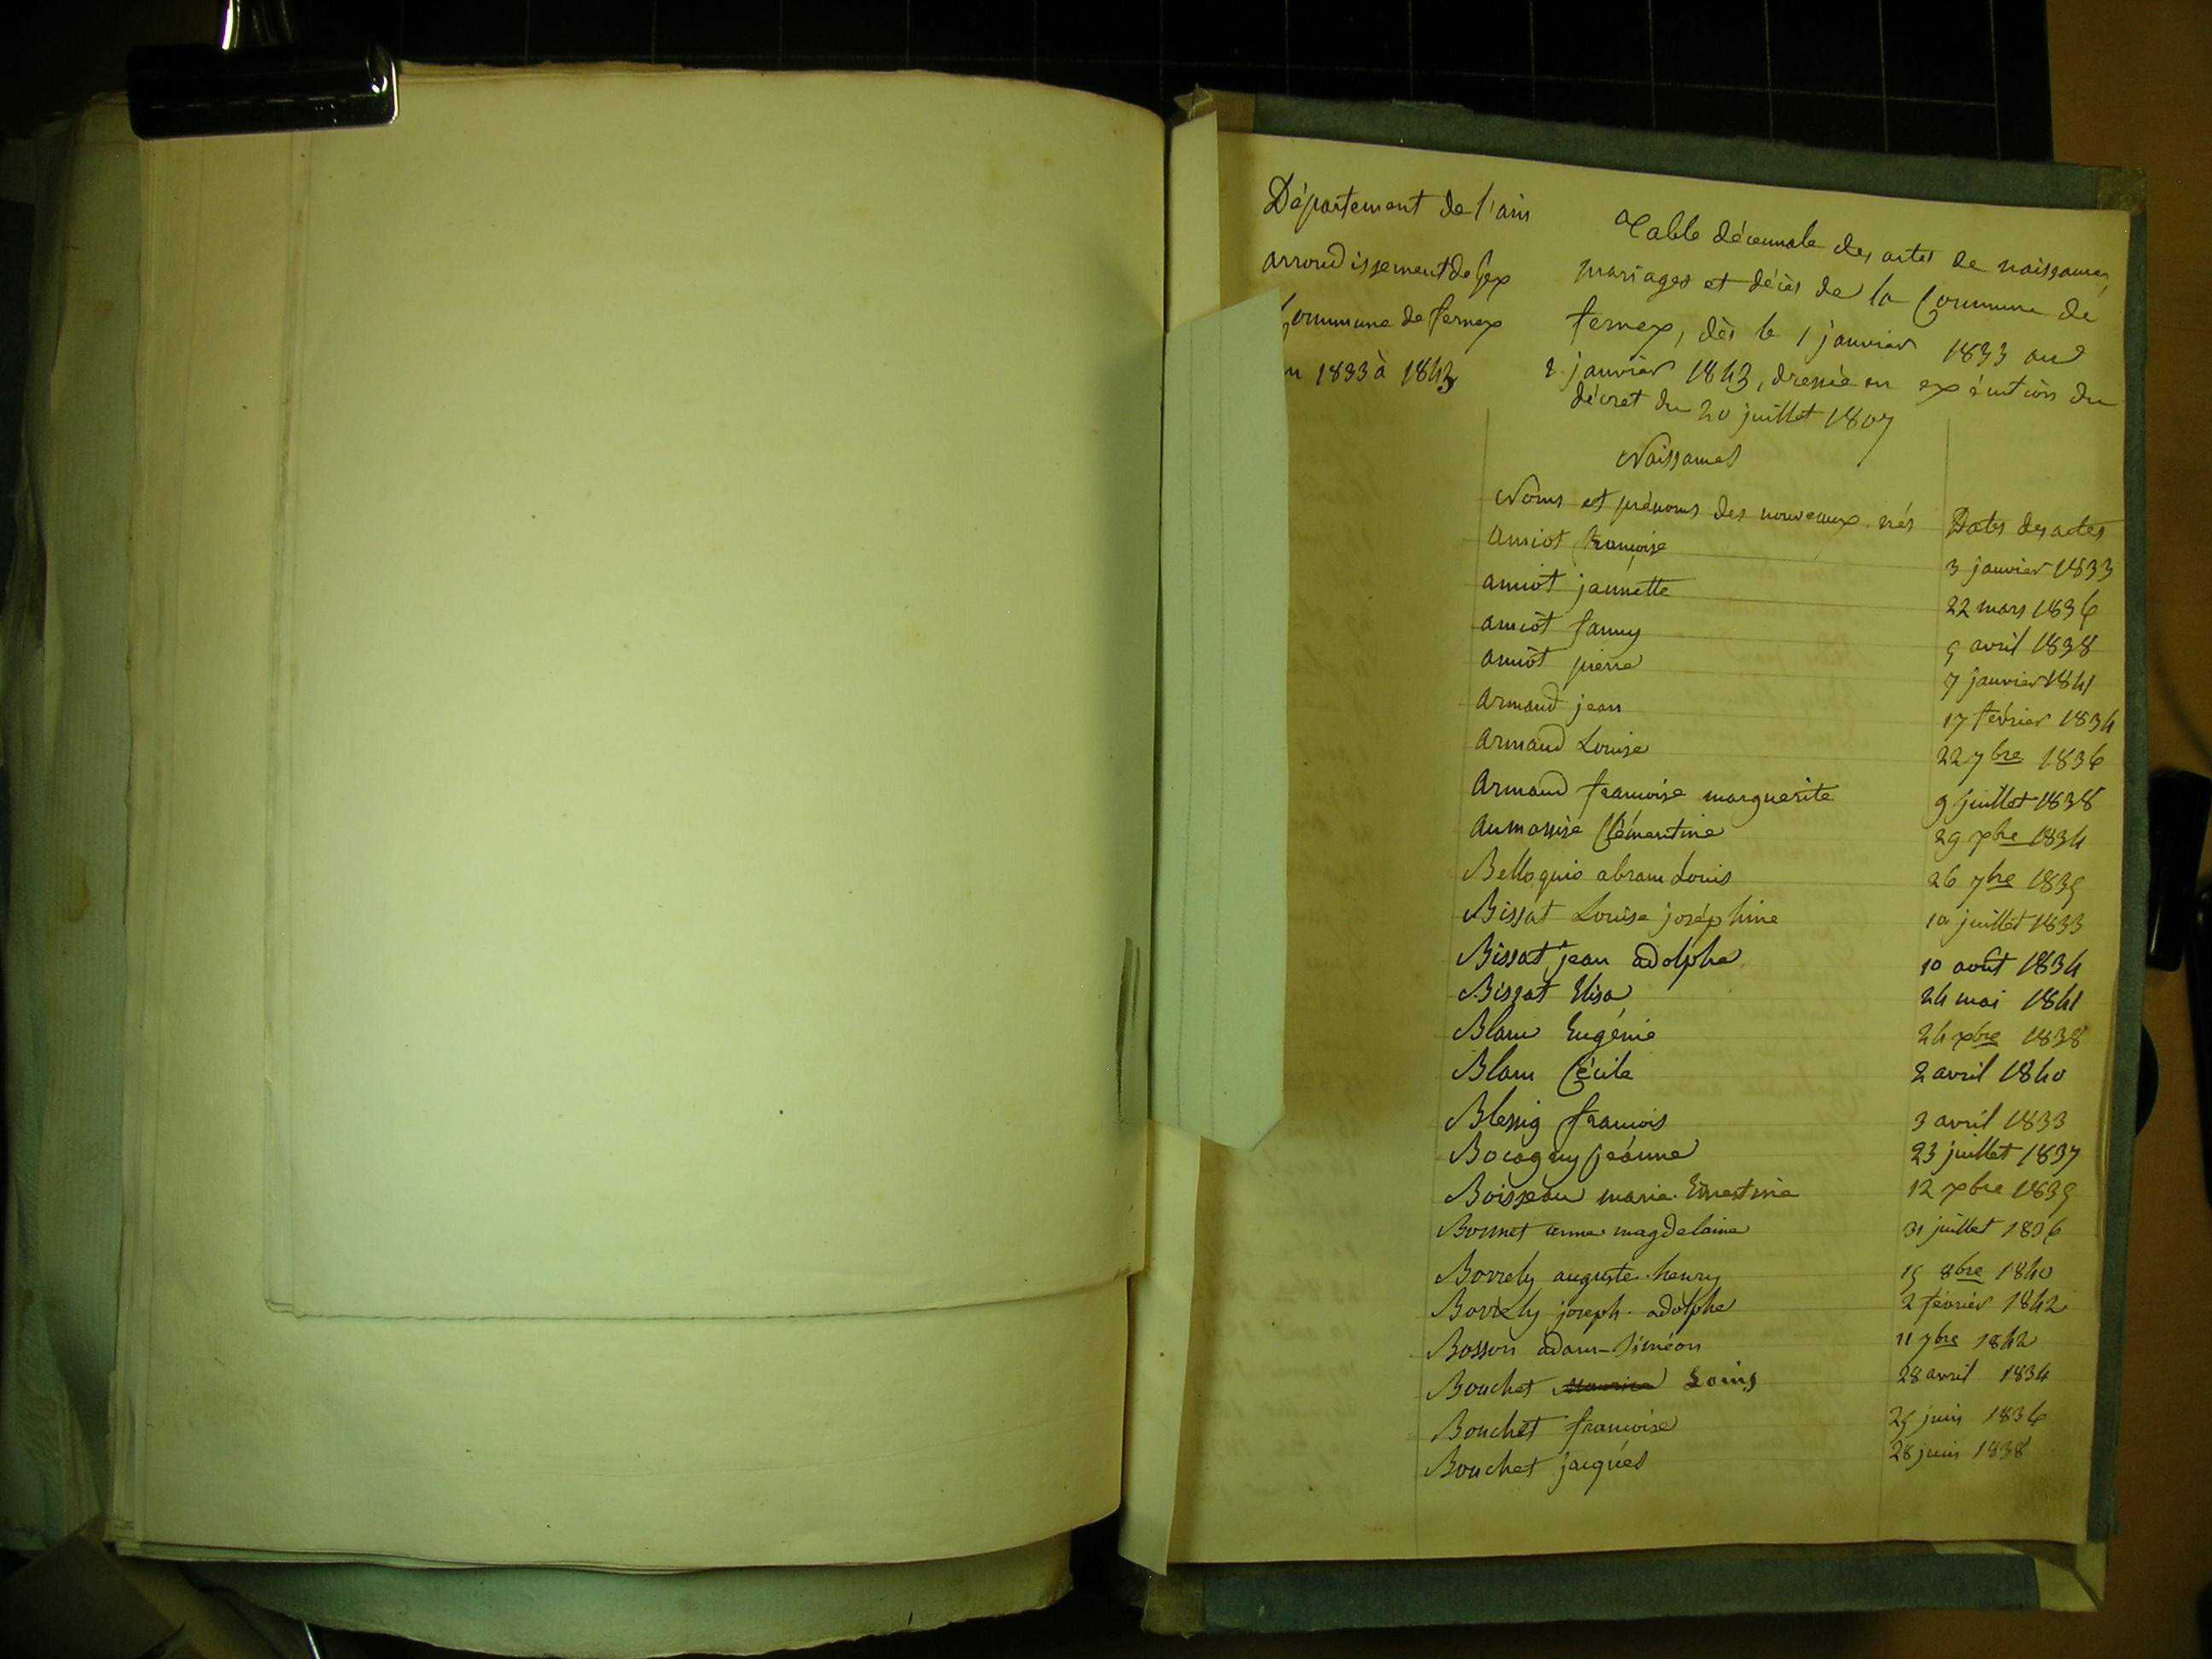 Département de l'ain
arrondissement de Gex
Commune de fernex
1833 à 1843
Table décennale des actes de naissances,
mariages et décès de la Commune de
fernex, dès le 1 janvier 1833 au
1 janvier 1843, dressée en exécution du
décret du 20 juillet 1807
Naissances
Noms et prénoms des nouveaux nés Dates des actes
amiot françoise 3 janvier 1833
amiot jannette 22 mars 1836
amiot fanny 5 avril 1838
amiot pierre 7 janvier 1841
Armand jean 17 février 1834
Armand Louise 22 7bre 1836
Armand françoise marguerite 9 juillet 1838
Clémentine 29 xbre 1834
Belloquio abram Louis 26 7bre 1835
Bissat Louise joséphine 10 juillet 1833
Bissat jean adolphe 10 août 1834
Bissat Elisa 24 mai 1841
Blanc Eugénie 24 xbre 1838
Blanc Cécile 2 avril 1840
Blessig francois 3 avril 1833
Bocagny jeanne 23 juillet 1837
Boisseau marie Ernestine 12 xbre 1835
Bonnet anne magdelaine 31 juillet 1836
Borrely auguste henry 15 8bre 1840
Borrely joseph adolphe 2 février 1842
Bosson adam-Siméon 11 7bre 1842
Bouchet Maurice Louis 28 avril 1834
Bouchet francoise 25 juin 1836
Bouchet jacques 28 juin 1838